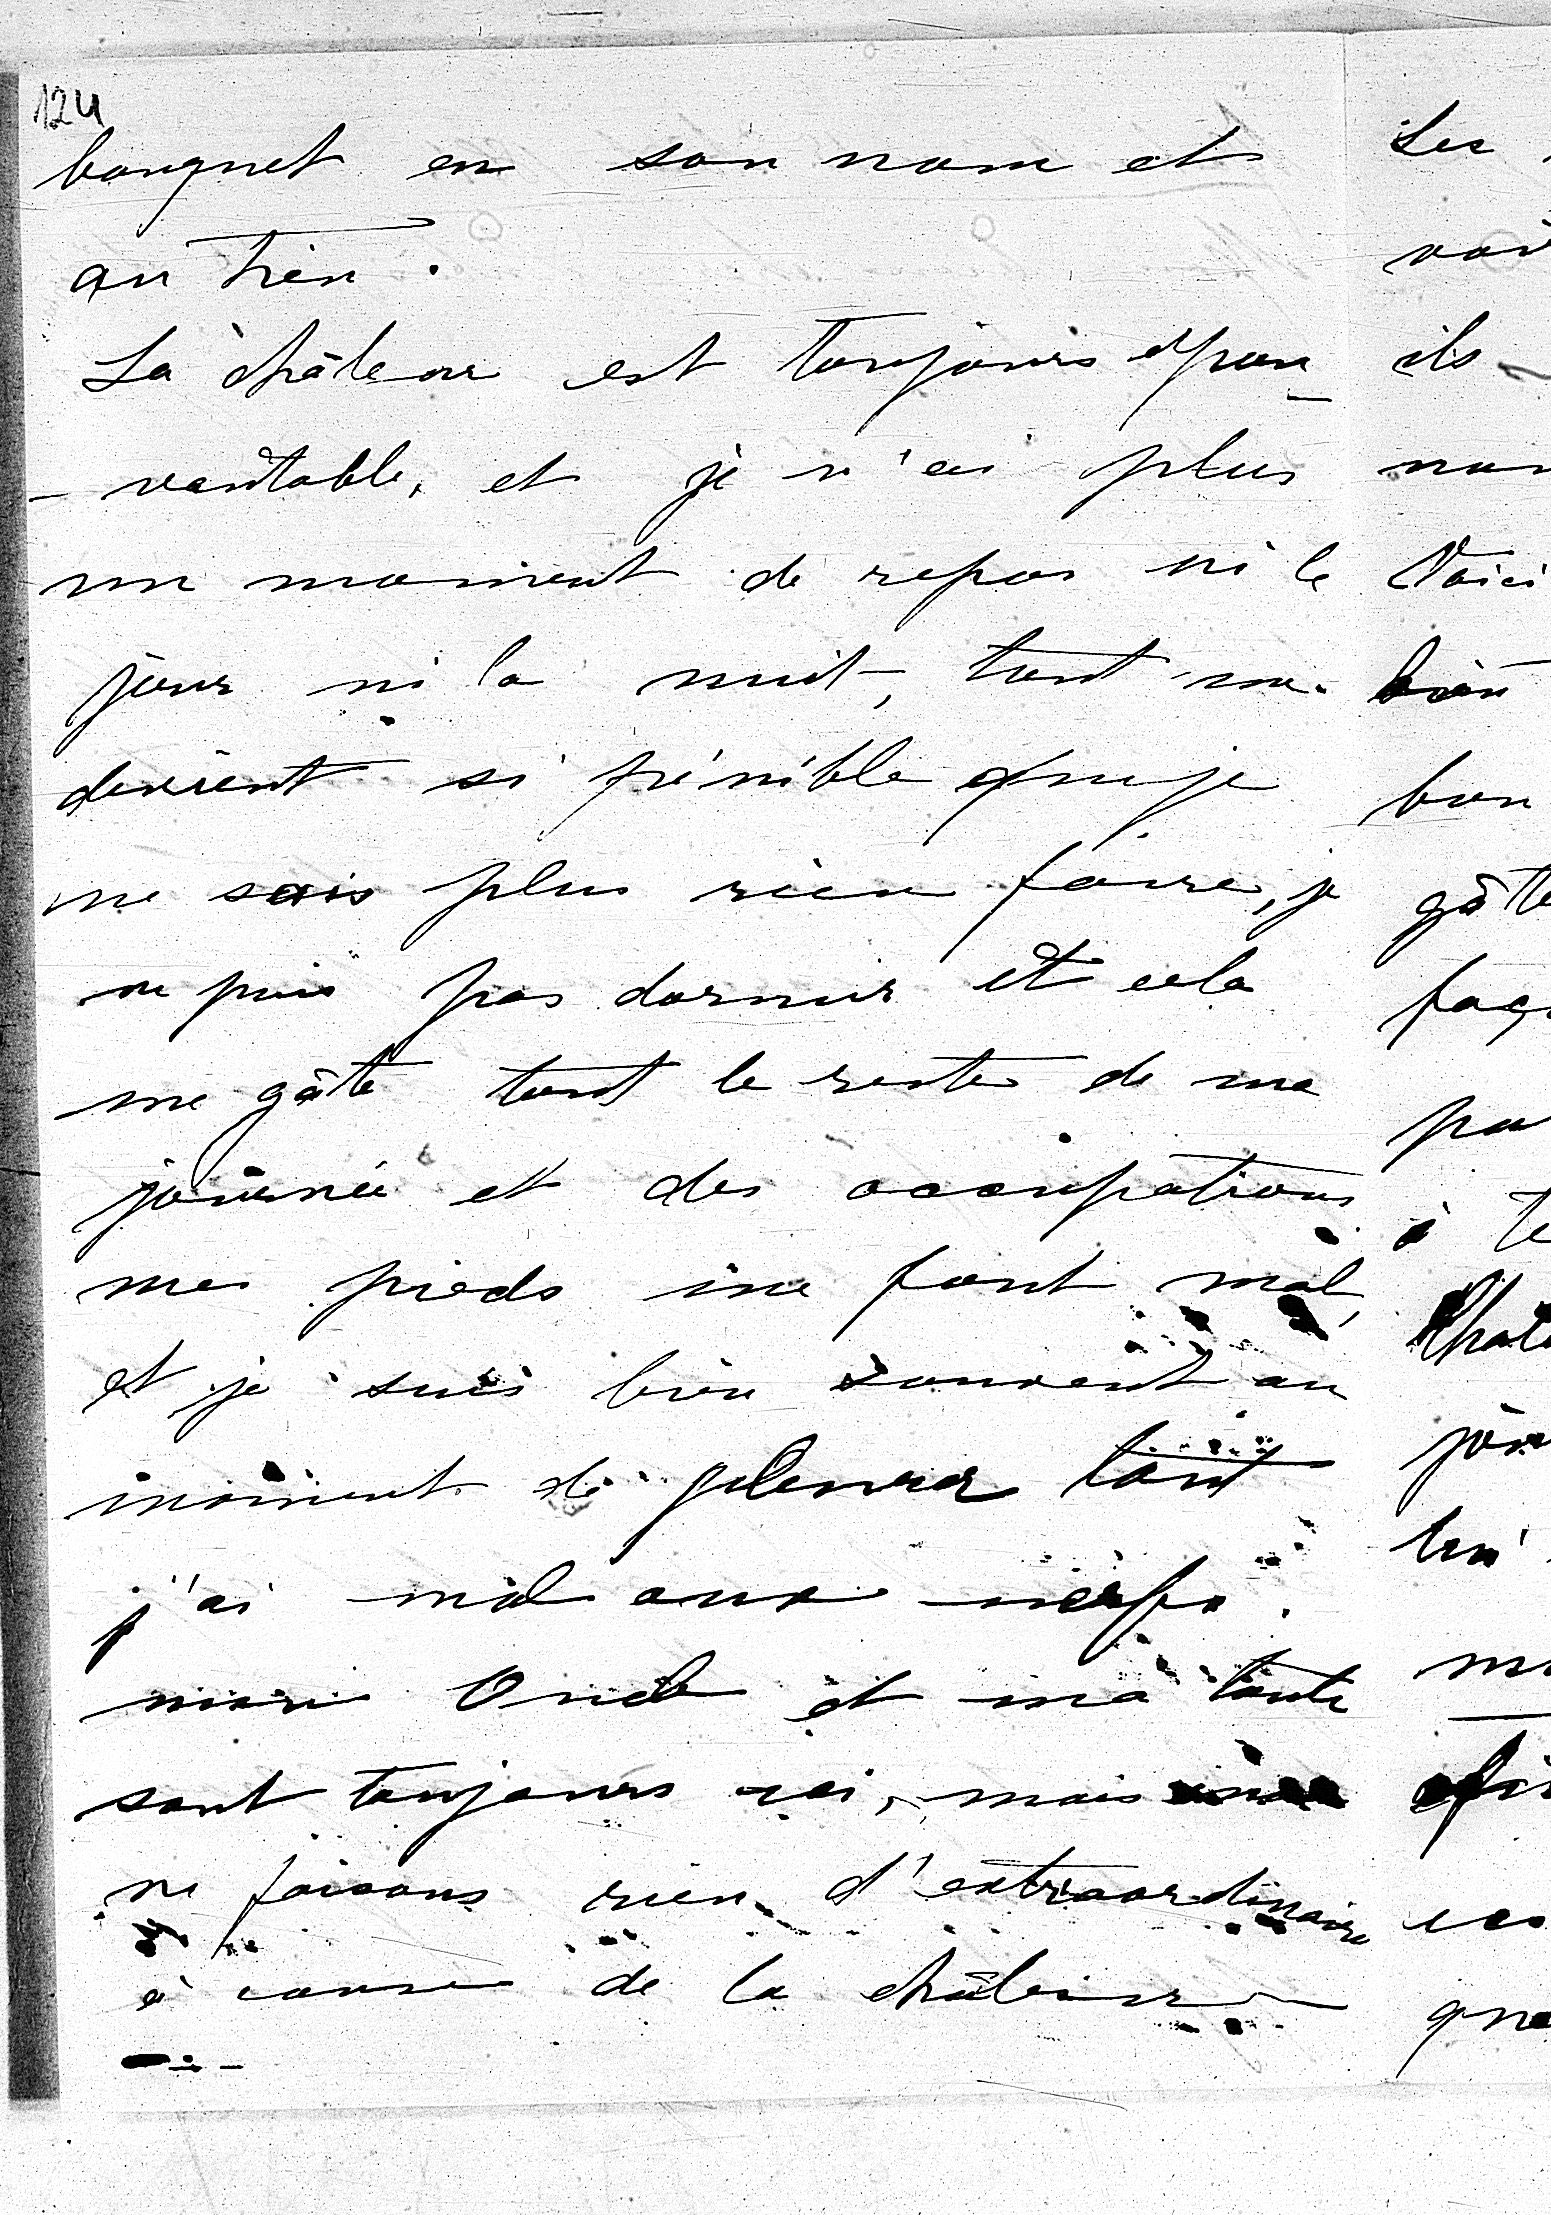 124
bouquet en son nom et
au tien.
La châleur est toujours épou
-vantable, et je n'ai plus
un moment de repos ni le
jour ni la nuit, tout me
devient si pénible que je
ne sais plus rien faire, je
ne puis pas dormir et cela
me gâte tout le reste de ma
journée et des occupations
mes pieds me font mal,
et je suis bien souvent au
moment de pleurer tant
j'ai mal aux nerfs.
mon Oncle et ma tante
sont toujours ici, mais
ne faisons rien d'extraordinaire
à cause de la châleur
Les
ils
Voici
bien
bon
gâte
à te
que